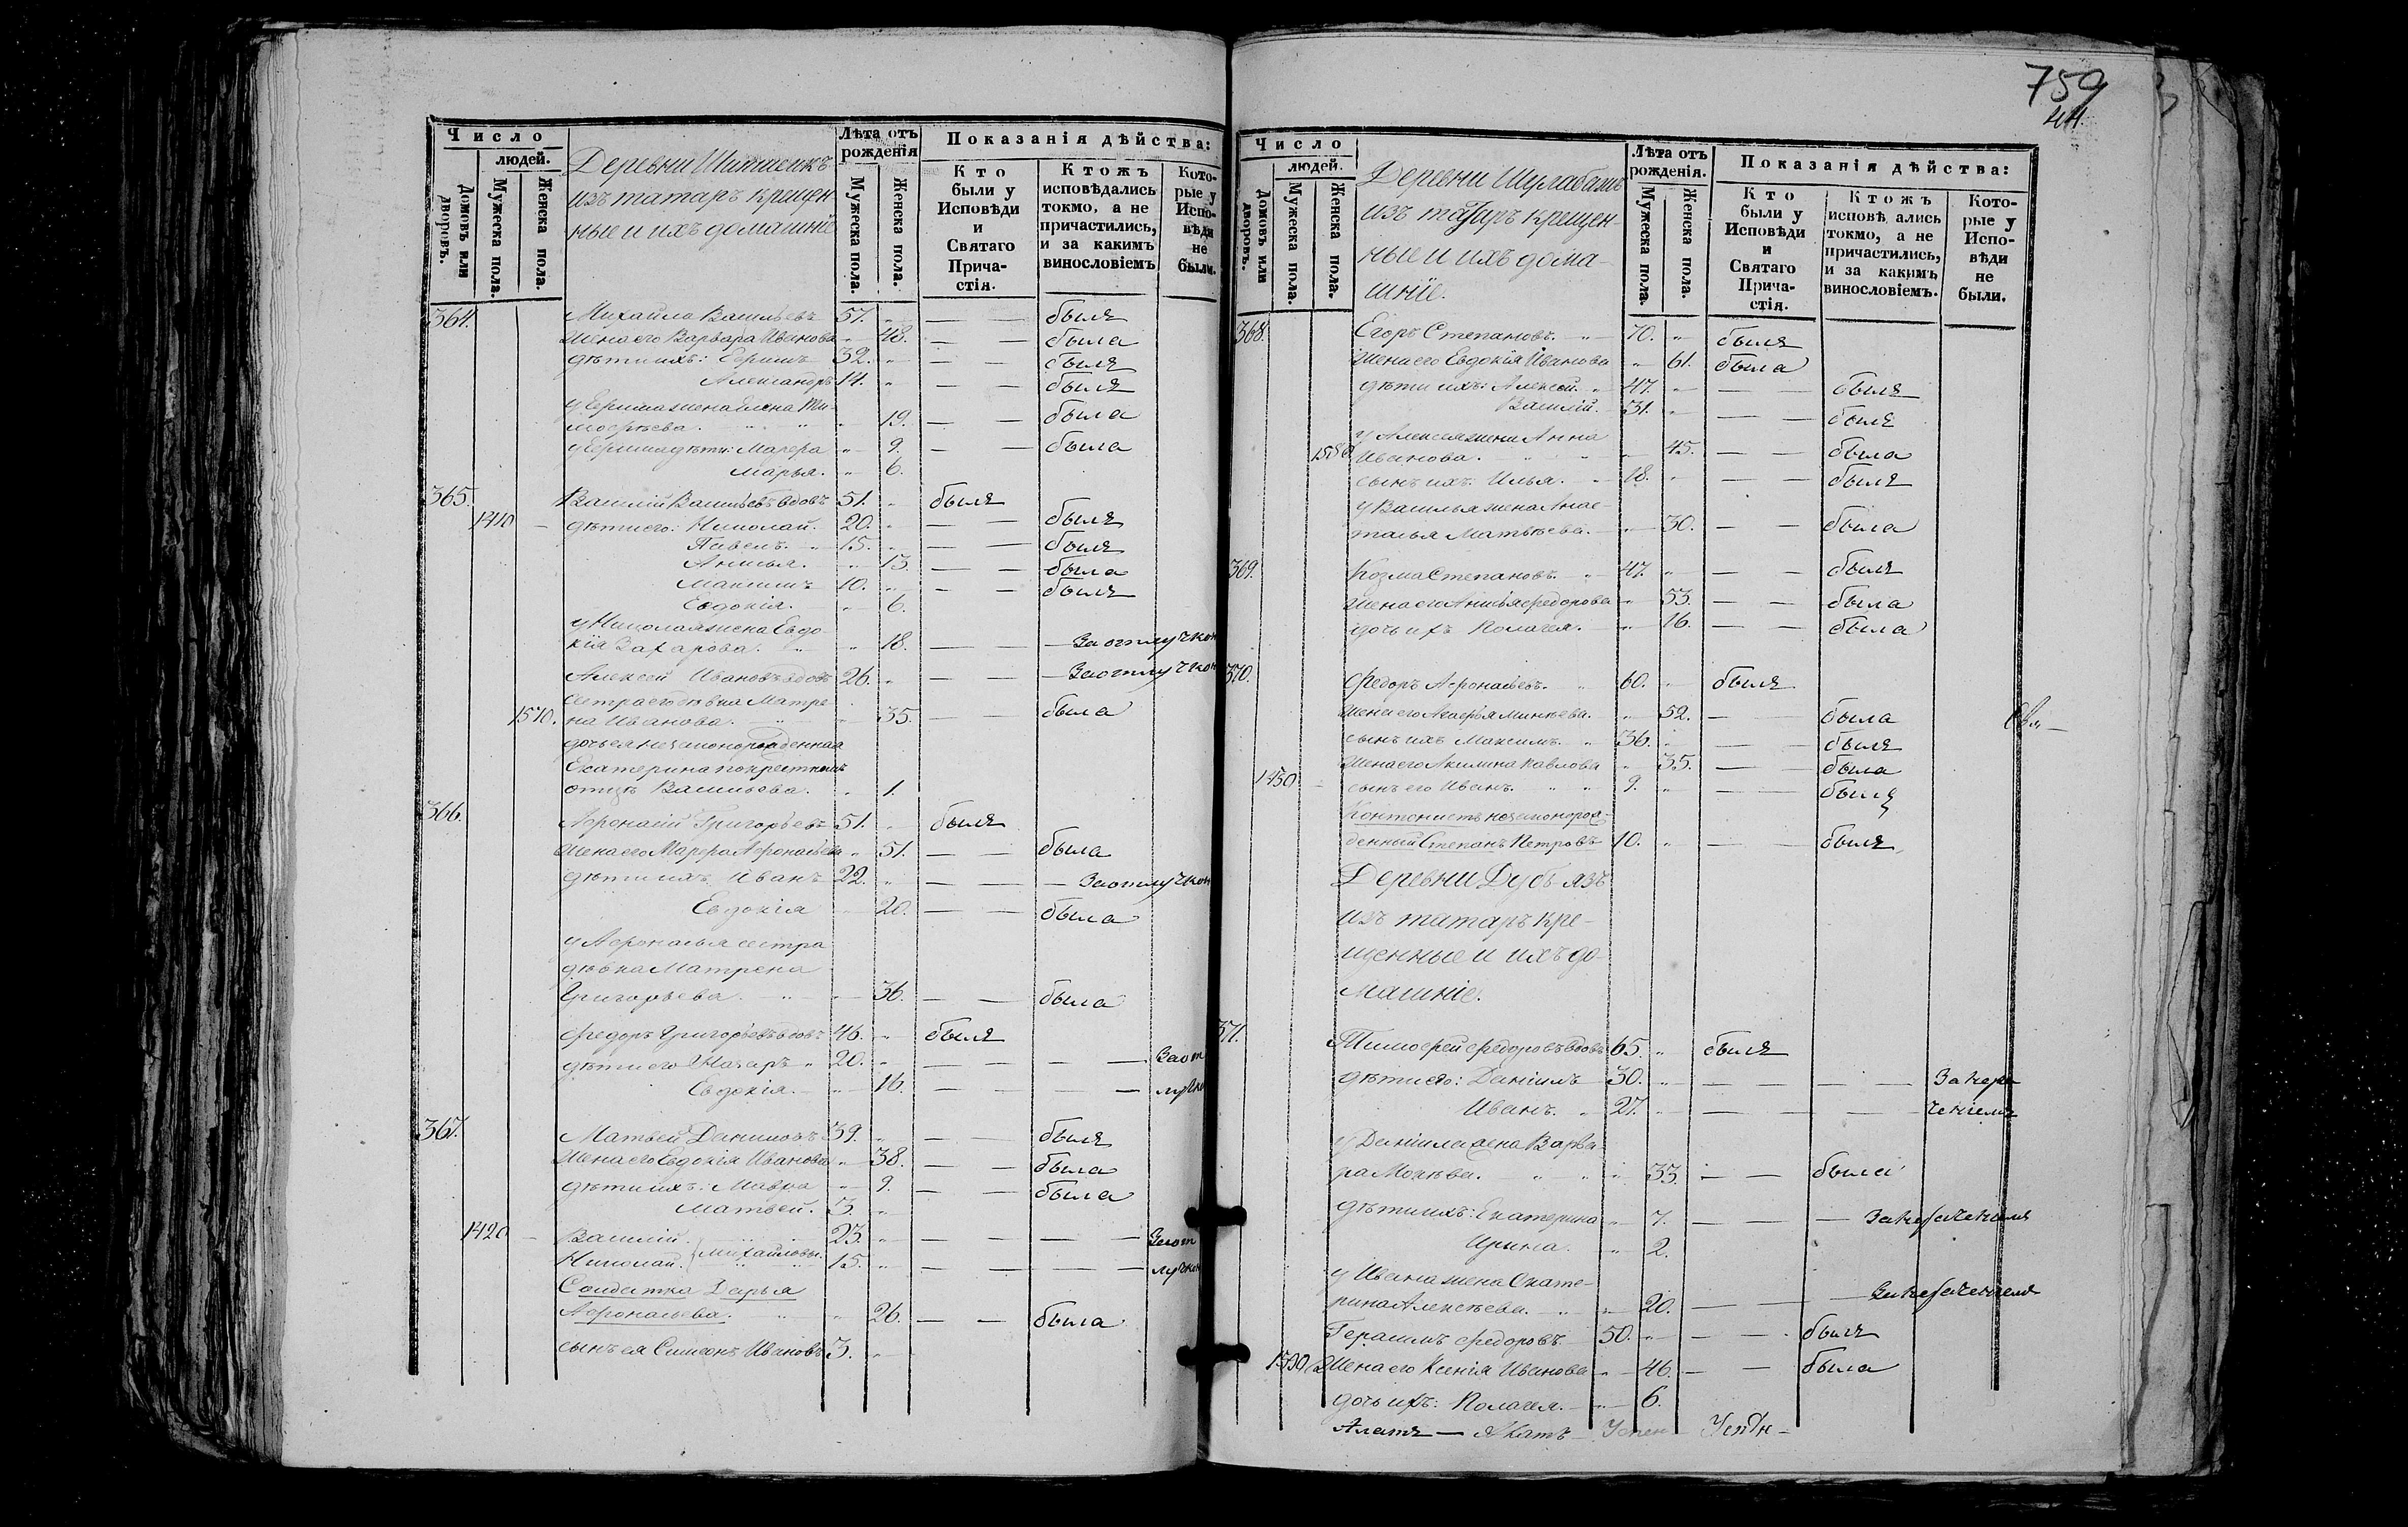 Число
людей.
Домовъ или дворовъ.
Мужеска пола.
Женска пола.
Деревни
изъ татаръ крещен
ные и ихъ домашніе
Лѣта отъ рожденія
Мужеска пола.
Женска пола.
Показанія дѣйства:
Кто были у Исповѣди и Святаго Прича-стія.
Ктожъ исповѣдались токмо, а не причастились, и за какимъ винословіемъ
Кото-рые у Испо-вѣди не были.
364. Михайла Васильевъ 57. „ — — былъ
Жена его Варвара Иванова „ 48. — — была
дѣти ихъ: Ефимъ 32. „ — — былъ
Александръ 14. „ — — былъ
у Ефима жена Елена Ти-
мофѣева. „ 19. — — была
у Ефима дѣти: Марфа „ 9. — — была
Марья. „ 6.
365. Василій Васильевъ вдовъ 51. „ былъ
1410 — дѣти его: Николай. 20. „ — — былъ
Павелъ. 15. „ — — былъ
Анисья. „ 13. — — была
Максимъ 10. „ — — былъ
Евдокія. „ 6.
у Николая жена Евдо-
кія Захарова. „ 18. — — — За отлучкой
Алексей Ивановъ вдовъ 26. „ — — — За отлучкой
сестра его дѣвка Матре
1570. на Иванова. „ 35. — — была
дочь ея незаконорожденная
Екатерина по крестномъ
отцѣ Васильева. „ 1.
366. Афонасій Григорьевъ 51. „ былъ
Жена его Марфа Афонасьева „ 51. — — была
дѣти ихъ Иванъ 22. „ — — — За отлучкой
Евдокія „ 20. — — была
у Афонасья сестра
дѣвка Матрена
Григорьева. „ 36. — — была
Федоръ Григорьевъ вдовъ 46. „ былъ
дѣти его Назаръ „ 20. „ — — — — За от
Евдокія. „ 16. — — — — лучко
367. Матвей Даниловъ 39. „ — — былъ
Жена его Евдокія Иванова „ 38. — — была
дѣти ихъ: Мавра „ 9. — — была
Матвей. 3. „
1420 — Василій. 23. „ — — — — За от
Николай. } Михайловы. 15. „ — — — — лучкой
Солдатка Дарья
Афонасьева. „ 26. — — была
сынъ ея Симеонъ Ивановъ 3. „
759
44.
Число
людей.
Домовъ или дворовъ.
Мужеска пола.
Женска пола.
Деревни Шулабашъ
изъ татаръ крещен-
ные и ихъ дома-
шніе.
Лѣта отъ рожденія.
Мужеска пола.
Женска пола.
Показанія дѣйства:
Кто были у Исповѣди и Святаго Прича-стія.
Ктожъ исповѣ ались токмо, а не причастились, и за какимъ винословіемъ.
Кото-рые у Испо-вѣди не были.
368. Егоръ Степановъ. „ 70. „ былъ
Жена его Евдокія Иванова „ 61. была
дѣти ихъ: Алексей. „ 47. „ — — былъ
Василій. 31. „ — — былъ
у Алексея жена Анна
1580 Иванова. „ 45. — — была
сынъ ихъ: Илья. 18. „ — — былъ
у Василья жена Анас-
тасья Матвѣева. „ 30. — — была
369. Козма Степановъ. „ 47. „ — — былъ
Жена его Анисья Федорова „ 53. — — была
дочь ихъ Пелагея. „ 16. — — была
370. Федоръ Афонасьевъ. „ 60. „ былъ
Жена его Агафья Минѣева. „ 52. — — была
сынъ ихъ Максимъ. „ 36. „ — — былъ
Жена его Акилина Павлова „ 35. — — была
1430 — сынъ его Иванъ. „ 9. „ — — былъ
Кантонистъ незаконорож-
денный Степанъ Петровъ 10. „ — — былъ
Деревни Дусъ-язъ
изъ татаръ кре-
щенные и ихъ до-
машніе.
371. Тимофей Федоровъ вдовъ 65. „ былъ
дѣти его: Даніилъ 30. „ — — — — За нера
Иванъ. „ 27. „ — — — — ченіемъ
у Даніила жена Варва-
ра „ 33. — — была
дѣти ихъ: Екатерина „ 7. — — —
Ирина. „ 2.
у Ивана жена Екате-
рина Алексѣева. „ 20. — — —
Герасимъ Федоровъ 50. „ — — былъ
1590 Жена его Ксенія Иванова „ 46. — — была
дочь ихъ: Пелагея. „ 6.